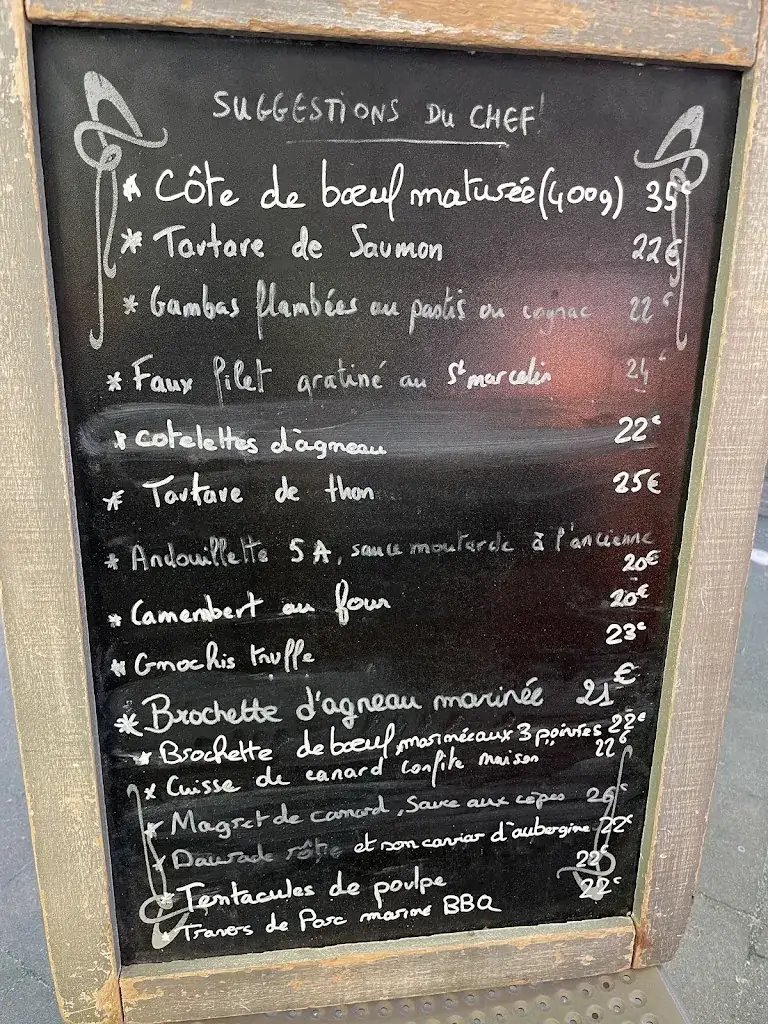 SUGGESTIONS DU CHEF!
* Côte de bœuf maturée (400g) 35€
* Tartare de Saumon 22€
* Gambas flambées au pastis ou cognac 22€
* Faux filet gratiné au St marcelin 24€
* cotelettes d'agneau 22€
* Tartare de thon 25€
* Andouillette 5A, sauce moutarde à l'ancienne
20€
* Camembert au four 20€
* Gnochis truffe 23€
* Brochette d'agneau marinée 21€
* Brochette de bœuf, marinée aux 3 poivres 22€
* Cuisse de canard confite maison 22€
* Magret de canard, sauce aux cèpes 26€
* Daurade rôtie et son caviar d'aubergine 22€
* Tentacules de poulpe 22€
* Travers de Porc mariné BBQ 22€